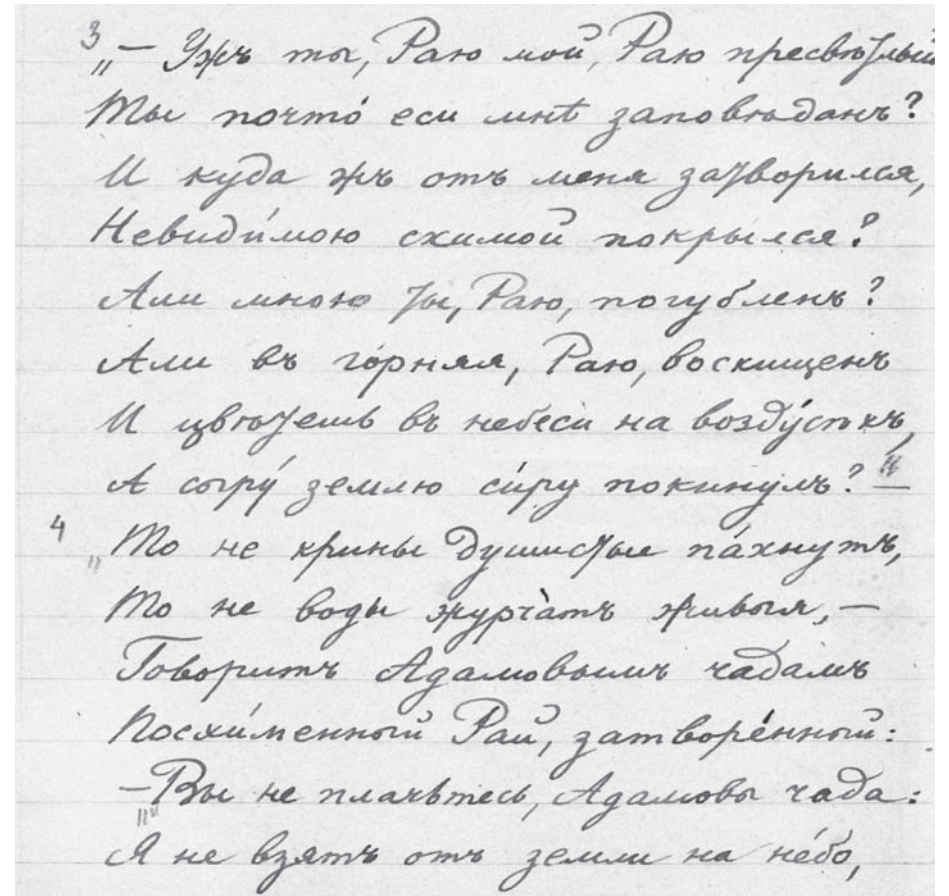 3 „— Ужъ ты, Раю мой, Раю пресвѣтлый
Ты почто́ еси мнѣ заповѣданъ?
И куда жъ отъ меня затворился,
Невиди́мою схимой покрылся?
Али мною ты, Раю, погубленъ?
Али въ го́рняя, Раю, восхищенъ
И цвѣтешь въ небеси на возду́сѣхъ,
А сыру́ землю си́ру поки́нулъ? — "
4 „То не крины души́стые па́хнутъ,
То не воды журча́тъ живыя, —
Говоритъ Адамовымъ чадамъ
Посхи́менный Рай, затворе́нный:
— „Вы не плачьтесь, Адамовы чада:
Я не взятъ отъ земли на не́бо,